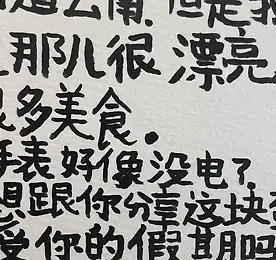 云南。但是
那儿很漂亮
多美食。
表好像没电了
想跟你分享这块
爱你的假期吗